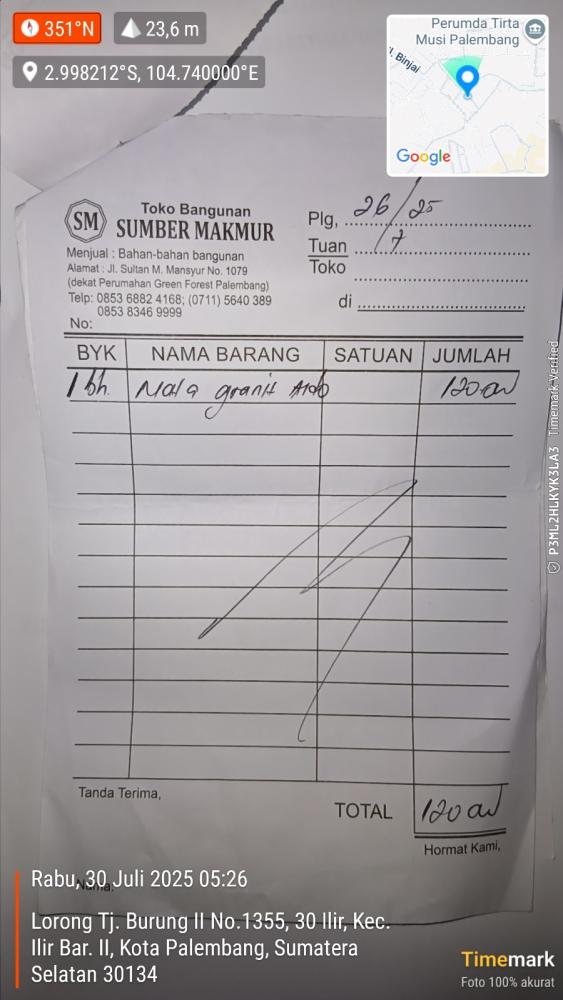 351°N
23,6 m
2.998212°S, 104.740000°E
Perumda Tirta
Musi Palembang
Jl. Binjai
Google
SM
Toko Bangunan
SUMBER MAKMUR
Menjual : Bahan-bahan bangunan
Alamat : Jl. Sultan M. Mansyur No. 1079
(dekat Perumahan Green Forest Palembang)
Telp: 0853 6882 4168; (0711) 5640 389
0853 8346 9999
No:
Plg, 26/7 25
Tuan
Toko
di
BYK NAMA BARANG SATUAN JUMLAH
1 bh. Mata granit Aldo 120
Tanda Terima,
TOTAL 120
Hormat Kami,
Nama:
Rabu, 30 Juli 2025 05:26
Lorong Tj. Burung II No.1355, 30 Ilir, Kec.
Ilir Bar. II, Kota Palembang, Sumatera
Selatan 30134
Timemark
Foto 100% akurat
P3ML2HLKYK3LA3 Timemark Verified